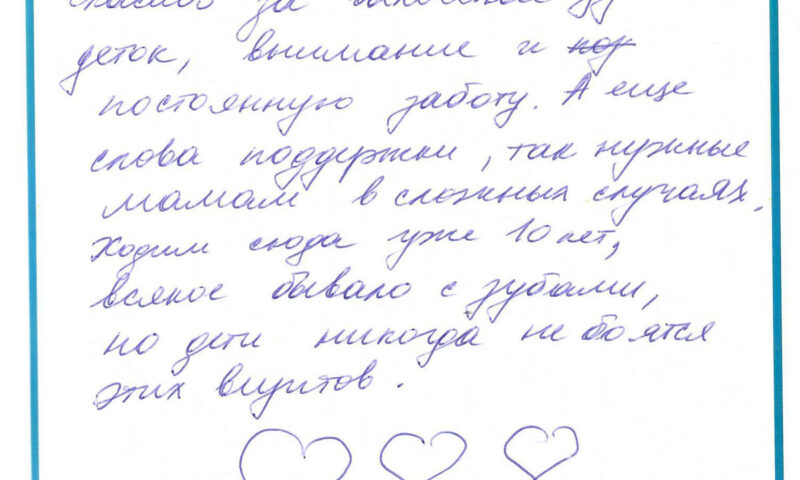 спасибо за
деток, внимание и
постоянную заботу. А еще
слова поддержки, так нужные
мамам в сложных случаях.
Ходим сюда уже 10 лет,
всякое бывало с зубами,
но дети никогда не боятся
этих визитов.